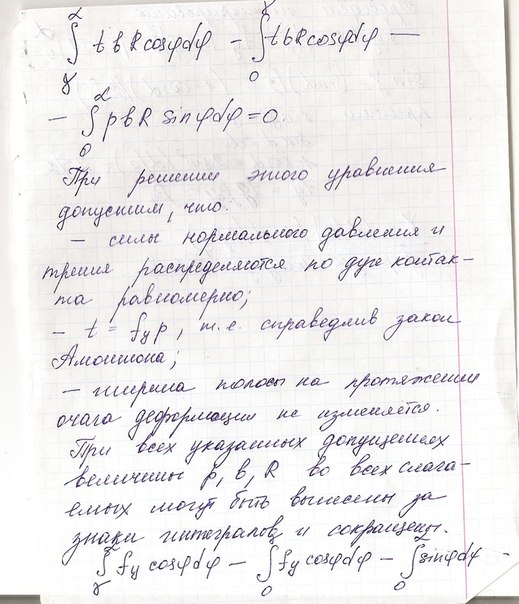 ∫_γ^α t b R cosφ dφ − ∫_0^γ t b R cosφ dφ —
− ∫_0^α p b R sinφ dφ = 0
При решении этого уравнения
допустим, что:
− силы нормального давления и
трения распределяются по дуге контак-
та равномерно;
− t = f_y p, т.е. справедлив закон
Амонтона;
− ширина полосы на протяжении
очага деформации не изменяется.
При всех указанных допущениях
величины p, b, R во всех слага-
емых могут быть вынесены за
знаки интегралов и сокращены.
∫_γ^α f_y cosφ dφ − ∫_0^γ f_y cosφ dφ − ∫_0^α sinφ dφ -